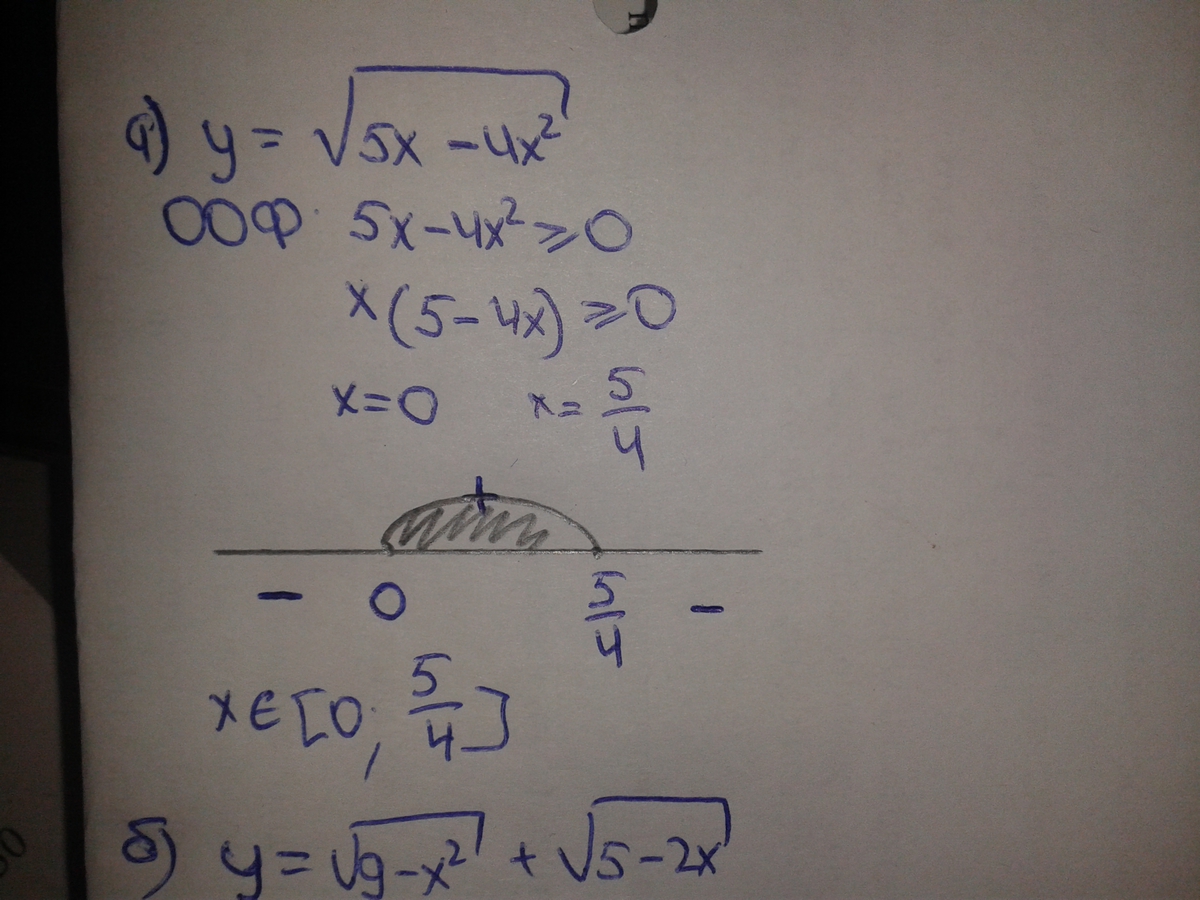 а) y = √5x - 4x²
ООФ: 5x - 4x² ⩾ 0
x(5 - 4x) ⩾ 0
x = 0 x = 5/4
+
- 0 5/4 -
x ∈ [0; 5/4]
б) y = √9 - x² + √5 - 2x